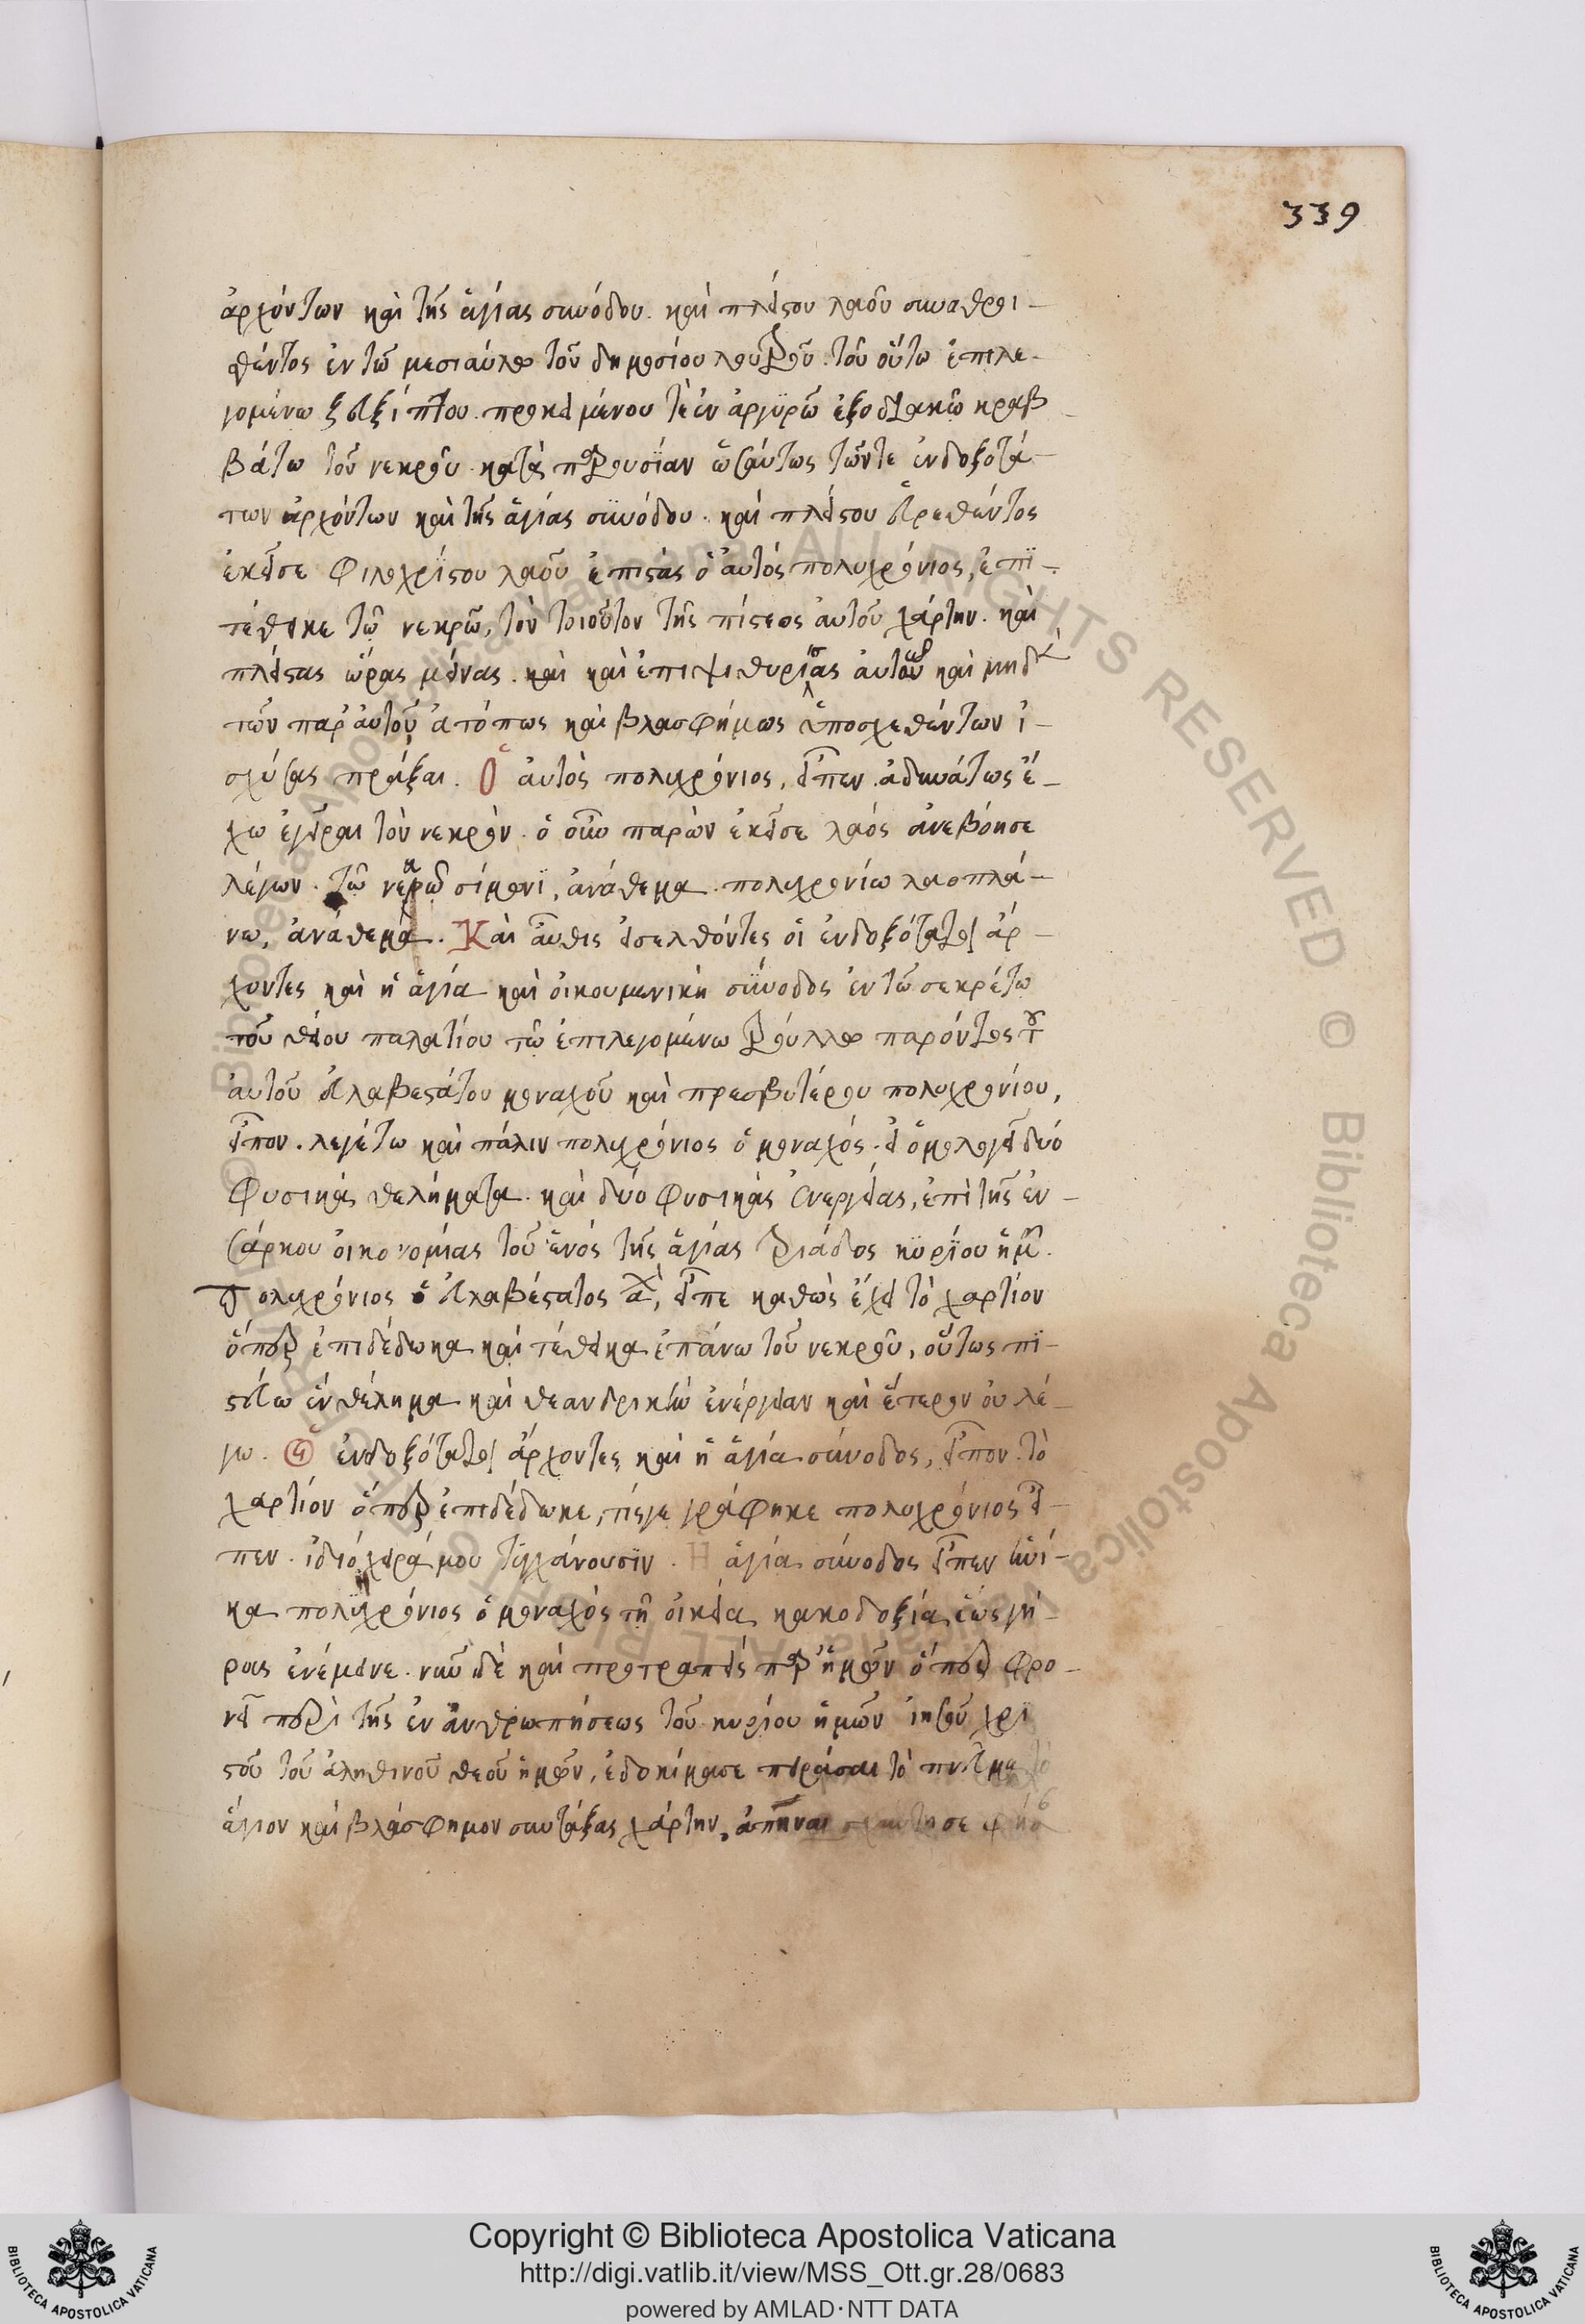 339
ἀρχόντων καὶ τῆς ἁγίας συνόδου. καὶ πλείστου λαοῦ συναθροι-
θέντος ἐν τῶ μεσιαύλω τοῦ δημοσίου λουτροῦ. τοῦ οὕτω ἐπιλε-
γομένω ζευξίππου. προκειμένου τὲ ἐν ἀργϋρῶ ἐξοδιακῶ κραβ
βάτω τοῦ νεκροῦ. κατὰ παρουσίαν ὡσαύτως τῶν τε ἐνδοξοτά-
των ἀρχόντων καὶ τῆς ἁγίας συνόδου. καὶ πλείστου εὑρεθέντος
ἐκεῖσε φιλοχρίστου λαοῦ ἐπιστὰς ὁ αὐτὸς πολυχρόνιος, ἐπϊ-
τέθεικε τῶ νεκρῶ, τὸν τοιοῦτον τῆς πίστεος αὐτοῦ χάρτην. καὶ
πλείστας ὥρας μείνας. καὶ καὶ ἐπιψιθυρίσας αὐτῶ καὶ μηδὲν
τῶν παρ' αὐτοῦ ἀτόπως καὶ βλασφήμως ὑποσχεθέντων ἰ-
σχύσας πράξαι. Ὁ αὐτὸς πολυχρόνιος, εἶπεν. ἀδυνάτως ἔ-
χω ἐγεῖραι τὸν νεκρόν. ὁ οὖν παρὼν ἐκεῖσε λαός ἀνεβόησε
λέγων. τῶ νεκρῶ σίμονϊ, ἀνάθεμα. πολυχρονίω λαοπλά-
νω, ἀνάθεμα. Καὶ αὖθις εἰσελθόντες οἱ ἐνδοξότατοι ἄρ-
χοντες καὶ ἡ ἁγία καὶ οἰκουμενικὴ σύνοδος ἐν τῶ σεκρέτω
τοῦ θείου παλατίου τῶ ἐπιλεγομένω τρούλλω παρόντος τοῦ
αὐτοῦ εὐλαβεστάτου μοναχοῦ καὶ πρεσβυτέρου πολυχρονίου,
εἶπον. λεγέτω καὶ πάλιν πολυχρόνιος ὁ μοναχός. εἰ ὁμολογεῖ δύο
φυσικὰ θελήματα. καὶ δύο φυσικὰς ἐνεργείας, ἐπὶ τῆς ἐν-
σάρκου οἰκονομίας τοῦ ἑνὸς τῆς ἁγίας τριάδος κϋρϊου ἡμῶν.
Πολυχρόνιος ὁ εὐλαβέστατος μοναχὸς, εἶπε καθὼς ἔχει τὸ χαρτίον
ὅπερ ἐπιδέδωκα καὶ τέθεικα ἐπάνω τοῦ νεκροῦ, οὕτως πϊ-
στεύω ἓν θέλημα καὶ θεανδρικὴν ἐνέργειαν καὶ ἕτερον οὐ λέ-
γω. Οἱ ἐνδοξότατοι ἄρχοντες καὶ ἡ ἁγία σύνοδος, εἶπον. τὸ
χαρτίον ὅπερ ἐπιδέδωκε, τίς γεγράφηκε πολυχρόνιος εἶ-
πεν. ἰδιόχειρά μου τυγχάνουσϊν. Ἡ ἁγία σύνοδος εἶπεν ἡνί-
κα πολυχρόνιος ὁ μοναχὸς τῆ οἰκεία κακοδοξία, ἕως γή-
ρους ἐνέμεινε. νῦν δὲ καὶ προτραπεὶς παρ' ἡμῶν ὅπερ φρο-
νεῖ περὶ τῆς ἐνανθρωπήσεως τοῦ κυρίου ἡμῶν ἰησοῦ χρι
στοῦ τοῦ ἀληθινοῦ θεοῦ ἡμῶν, ἐδοκίμασε πειράσαι τὸ πνεῦμα τὸ
ἅγιον καὶ βλάσφημον συντάξας χάρτην,
Copyright © Biblioteca Apostolica Vaticana
http://digi.vatlib.it/view/MSS_Ott.gr.28/0683
powered by AMLAD·NTT DATA